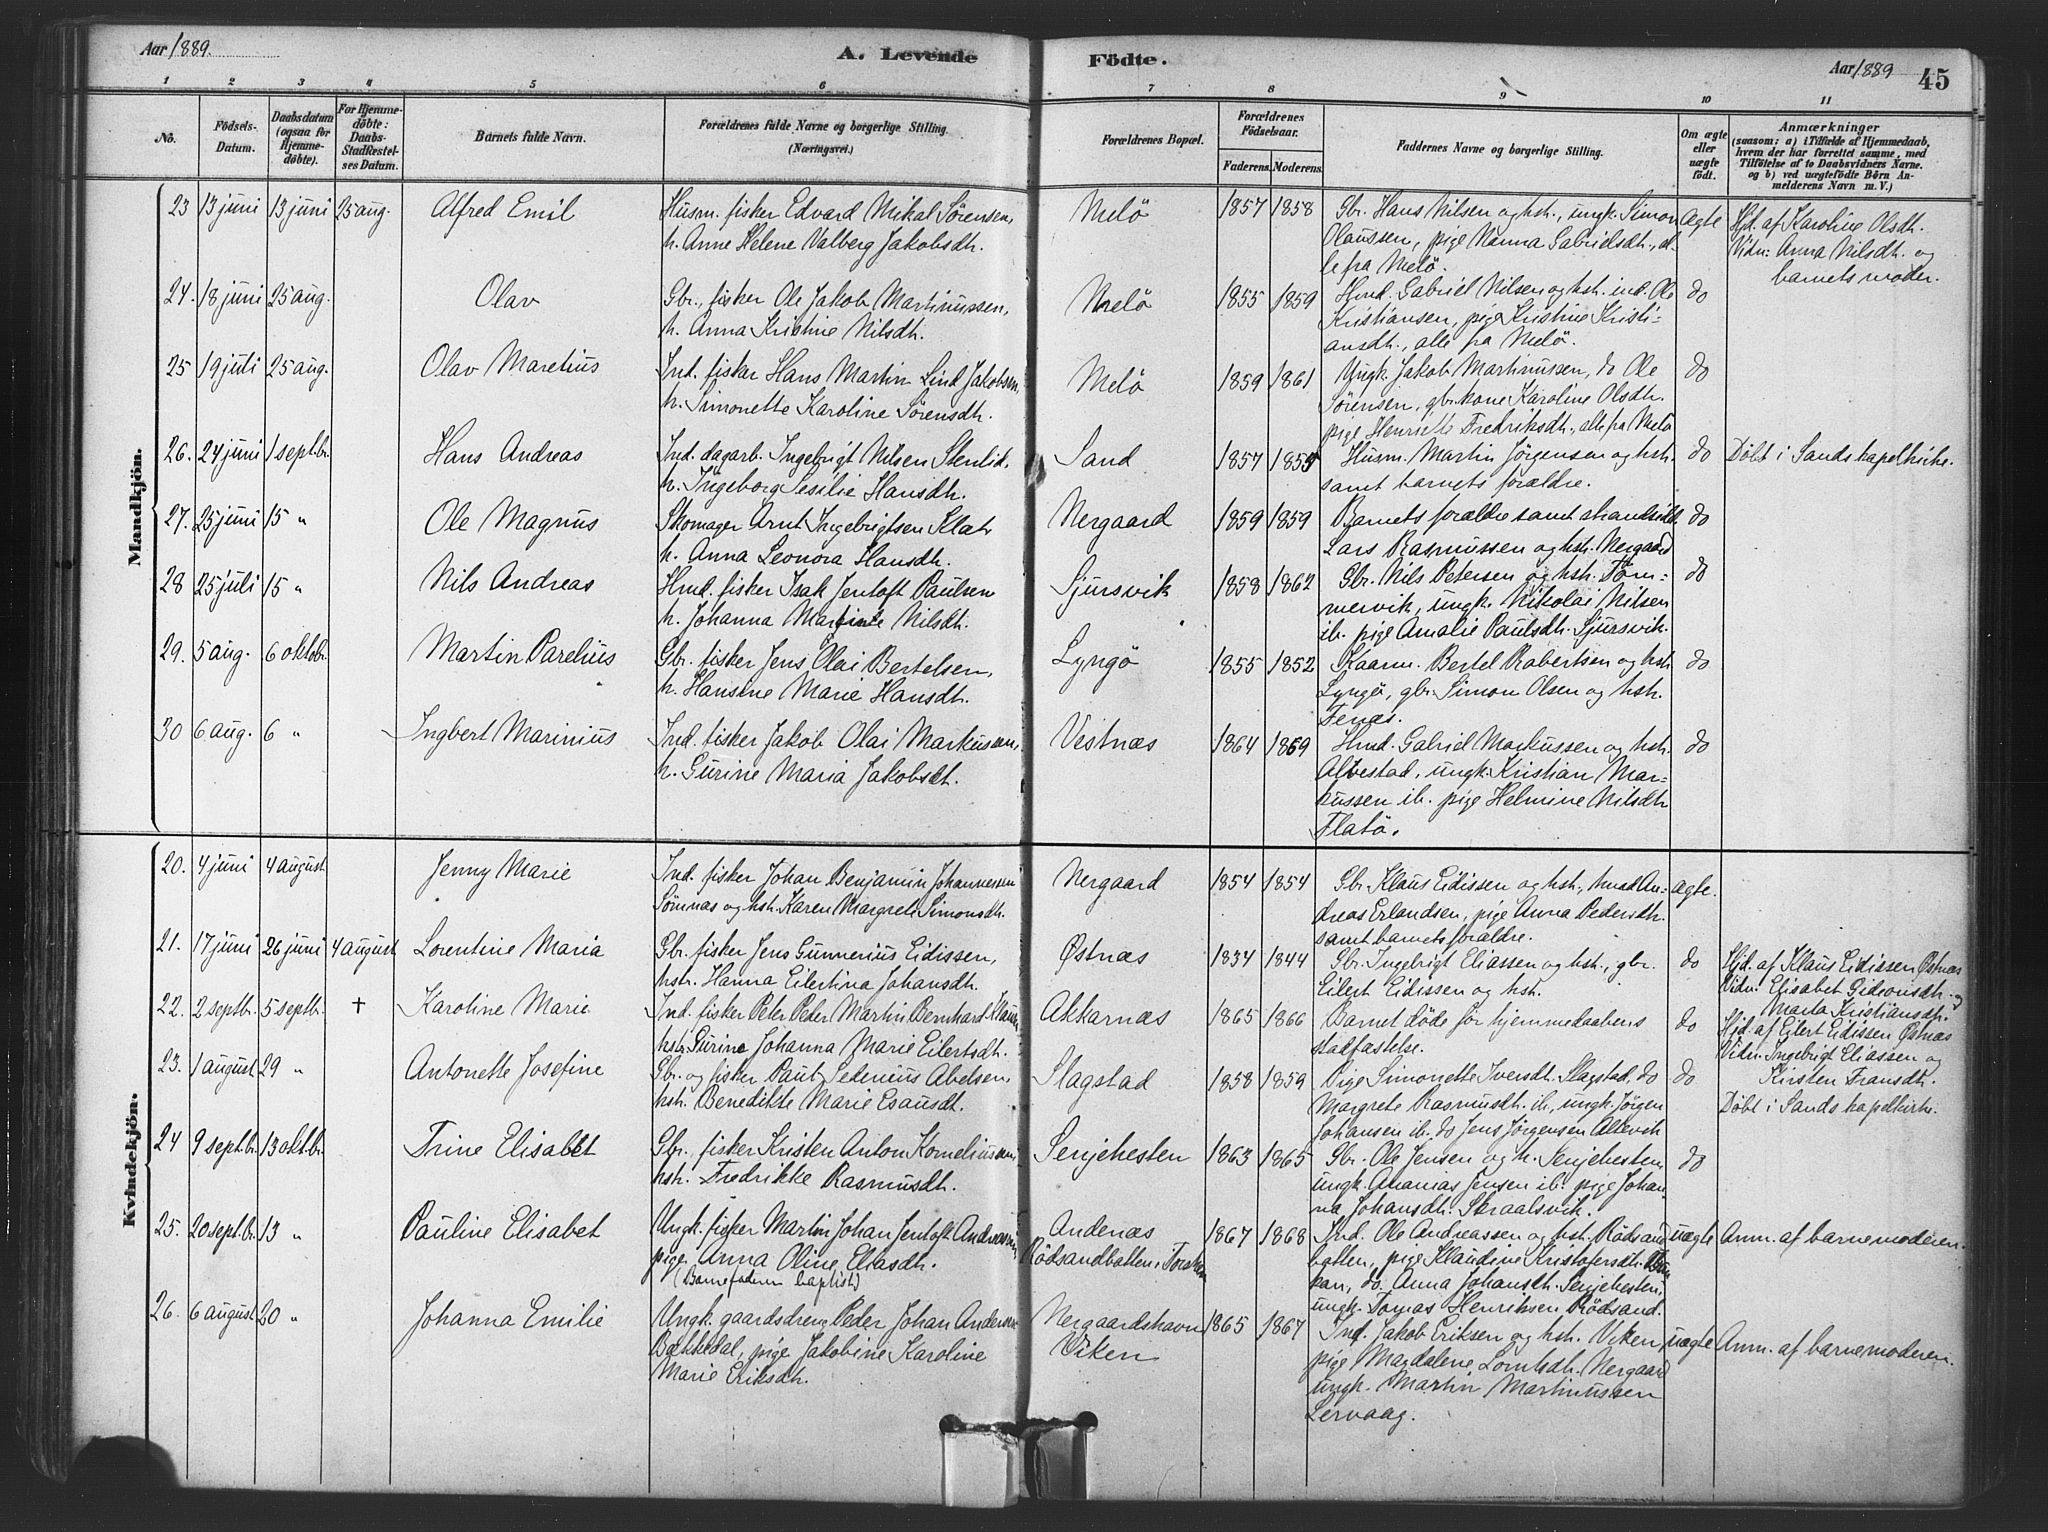 Aar 1889.
A. Levende Födte.
Aar 1889
45
1 2 3 4 5 6 7 8 9 10 11
No.
Födsels-Datum.
Daabsdatum (ogsaa for Hjemme-döbte).
For Hjemme-döbte: Daabs-Stadfæstel-ses Datum.
Barnets fulde Navn.
Forældrenes fulde Navne og borgerlige Stilling. (Næringsvei.)
Forældrenes Bopæl.
Forældrenes Födselsaar.
Faderens. Moderens.
Faddernes Navne og borgerlige Stilling.
Om ægte eller uægte födt.
Anmærkninger
(saasom: a) i Tilfælde af Hjemmedaab, hvem der har forrettet samme, med Tilföielse af to Daabsvidners Navne. og b) ved uægtefödte Börn An-melderens Navn m. V.)
Mandkjön.
23 13 juni 13 juni 25 aug. Alfred Emil
Husm. fisker Edvard Mikal Sörensen,
h. Anne Helene Valberg Jakobsdh.
Melö 1857 1858
Gbr. Hans Nilsen og hst., ungk. Simon
Olaussen, pige Nanna Gabrielsdh., al-
le fra Melö.
Ægte
Hjd. af Karoline Olsdh.
Vidn: Anna Nilsdh. og
barnets moder.
24. 18 juni 25 aug. Olav
Gbr., fisker Ole Jakob Martinussen,
h. Anna Kristine Nilsdh.
Melö 1855 1859
Hmd. Gabriel Nilsen og hst. ind. Ole
Kristiansen, pige Kristine Kristi-
ansdh., alle fra Melö.
do
25 19 juli 25 aug. Olav Maretius
Ind. fisker Hans Martin Lind Jakobsen,
h. Simonette Karoline Sörensdh.
Melö 1859 1861
Ungk. Jakob Martinussen, do Ole
Sörensen, gbr. kone Karoline Olsdh.
pige Henriette Fredriksdh., alle fra Melö
do
26. 24 juni 1 septbr. Hans Andreas
Ind. dagarb. Ingebrigt Nilsen Stenlid,
h. Ingeborg Sesilie Hansdh.
Sand 1857 1855
Husm. Martin Jörgensen og hst.
samt barnets forældre.
do
Döbt i Sands kapelkirke.
27. 25 juni 15 " Ole Magnus
Skomager Arnt Ingebrigtsen Klæt
h. Anna Leonora Hansdh.
Nergaard 1859 1859
Barnets forældre samt strandsidd.
Lars Rasmussen og hst. Nergaard
do
28 25 juli 15 " Nils Andreas
Hmd. fisker Isak Jentoft Paulsen
h. Johanna Martine Nilsdh.
Sjursvik 1858 1862
Gbr. Nils Petersen og hst. Töm-
mervik, ungk. Nikolai Nilsen
ib. pige Amalie Paulsdh. Sjursvik.
do
29. 5 aug. 6 oktobr. Martin Parelius
Gbr. fisker Jens Olai Bertelsen,
h. Hansine Marie Hansdh.
Lyngö 1855 1852
Kaarm. Bertel Robertsen og hst.
Lyngö, gbr. Simon Olsen og hst.
Fenæs.
do
30 6 aug. 6 " Ingbert Marinius
Ind. fisker Jakob Olai Markussen,
h. Gurine Maria Jakobsdt.
Vestnæs 1864 1869
Hmd. Gabriel Markussen og hst.
Alvestad, ungk. Kristian Mar-
kussen ib. pige Helmine Nilsdh.
Flatö.
do
Kvindekjön.
20. 4 juni 4 august Jenny Marie
Ind. fisker Johan Benjamin Johannessen
Sömnæs og hst. Karen Margrete Simonsdh.
Nergaard 1854 1854
Gbr. Klaus Eidissen og hst., hmd An-
dreas Erlandsen, pige Anna Pedersdh.
samt barnets forældre.
ægte.
21. 17 juni 26 juni 4 august Lorentine Maria
Gbr. fisker Jens Gunnerius Eidissen,
hstr. Hanna Eilertina Johansdh.
Østnæs 1834 1844
Gbr. Ingebrigt Eliassen og hst., gbr.
Eilert Eidissen og hst.
do
Hjd. af Klaus Eidissen Østnæs
Vidn: Elisabet Gideonsdh. og
Marta Kristiansdh.
22. 2 septbr. 5 septbr. † Karoline Marie
Ind. fisker Peter Peder Martin Bernhard Klausen
hstr. Gurine Johanna Marie Eilertsdh.
Akkarnæs 1865 1866
Barnet døde før hjemmedaabens
stadfæstelse.
do
Hjd. af Eilert Eidissen Østnæs
Vidn. Ingebrigt Eliassen og
Kirsten Fransdh.
23. 1 august 29 " Antonette Josefine
Gbr. og fisker Paul Sedenius Abelsen,
hst. Benedikte Marie Esausdt.
Slagstad 1858 1859
Pige Simonette Iversdt. Slagstad, do
Margrete Rasmusdt. ib., ungk. Jörgen
Johansen ib. do Jens Jörgensen Allevik
do
Döbt i Sands kapelkirke.
24 9 septbr. 13 oktbr. Trine Elisabet
Gbr. fisker Kristen Anton Korneliussen,
hst. Fredrikke Rasmusdh.
Senjehesten 1863 1865
Gbr. Ole Jensen og h. Senjehesten,
ungk. Ananias Jensen ib. pige Johan-
na Johansdh. Skraalsvik.
do
25. 20 septbr. 13 " Pauline Elisabet
Ungk. fisker Martin Johan Jentoft Andreassen
pige Anna Oline Eliasdh.
(Barnefaderen baptist)
Andenæs
Rödsandbotten i Torsken
1867 1868
Ind. Ole Andreassen og hst. Rödsand-
botten, pige Klaudine Kristofersdh.
kan, do. Anna Johansdt. Senjehesten,
ungk. Tomas Henriksen Rödsand.
uægte
Anm. af barnemoderen.
26. 6 august 20 " Johanna Emilie
Ungk. gaardsdreng Peder Johan Andersen
Bakkedal, pige Jakobine Karoline
Marie Eriksdh.
Nergaardshavn
Viken
1865 1867
Ind. Jakob Eriksen og hst. Viken,
pige Magdalene Lorntsdh. Nergaard
ungk. Martin Martinussen
Lervaag.
uægte
Anm. af barnemoderen.